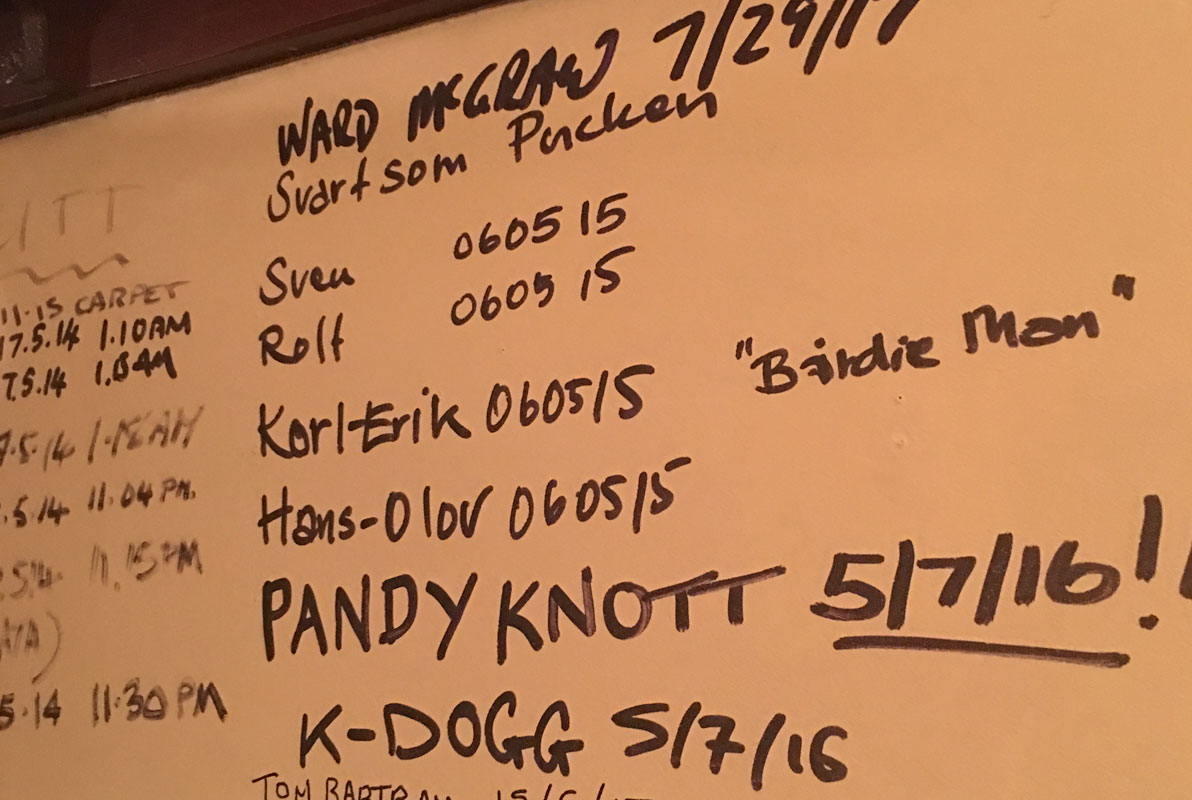 WARD McGRAW 7/29/17
Svart som Packen
Sven 060515
Rolf 060515
Karl-Erik 060515 "Birdie Man"
Hans-Olov 060515
PANDY KNOTT 5/7/16!
K-DOGG 5/7/16
TOM BARTRAM
ITT
11.15 CARPET
17.5.14 1.10AM
7.5.14
5.14 11.04 PM.
11.15PM
5.14 11.30 PM